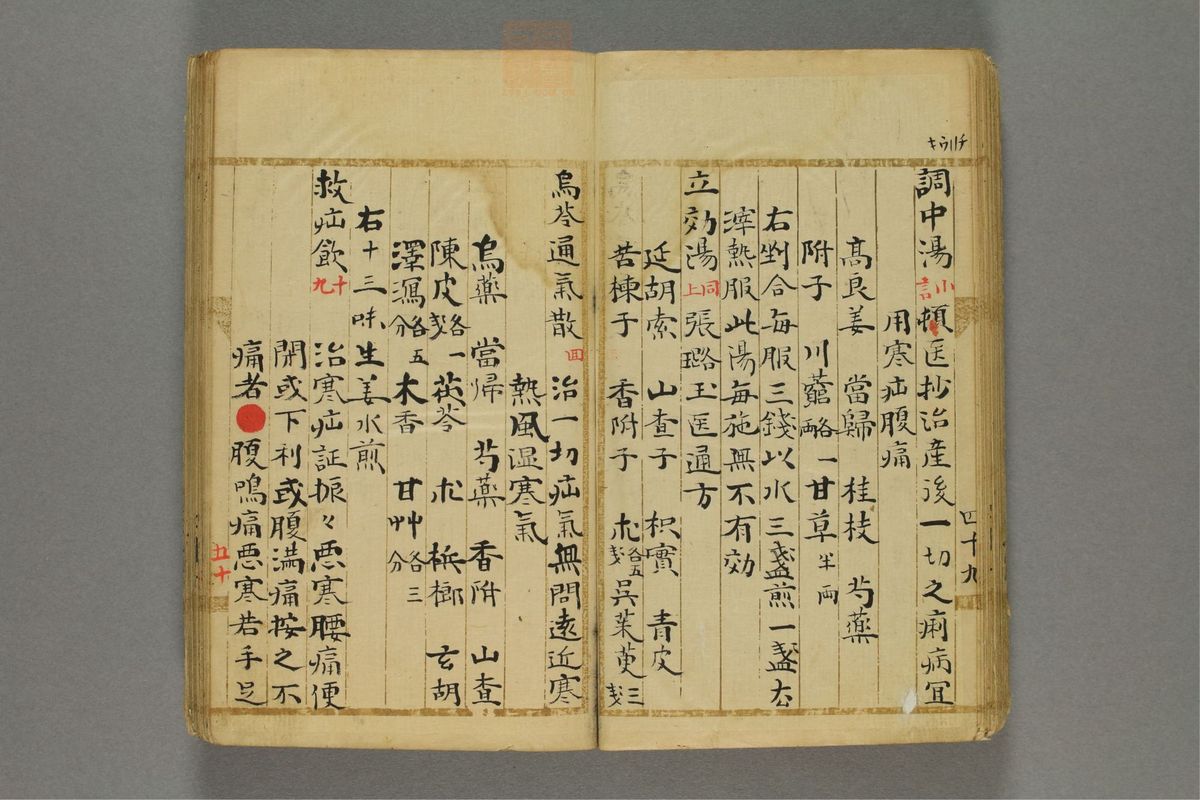 チリウキ
調中湯 訓 頓医抄治産後一切之痢病冝
用寒疝腹痛
高良姜 當歸 桂枝 芍藥
附子 川藭各一両 甘草半両
右剉合毎服三錢以水三盞煎一盞去
滓熱服此湯毎施無不有効
立効湯 同上 張璐玉医通方
延胡索 山查子 枳實 青皮
苦楝子 香附子 朮各五戔 呉茱萸三戔
四十九
烏苓通氣散 回 治一切疝氣無問遠近寒
熱風湿寒氣
烏藥 當帰 芍藥 香附 山查
陳皮各一戔 茯苓 朮 梹榔 玄胡
澤瀉各五分 木香 甘艸各三分
右十三味生姜水煎
救疝飲 十九
治寒疝証振々悪寒腰痛便
閉或下利或腹満痛按之不
痛者●腹鳴痛悪寒若手足
五十